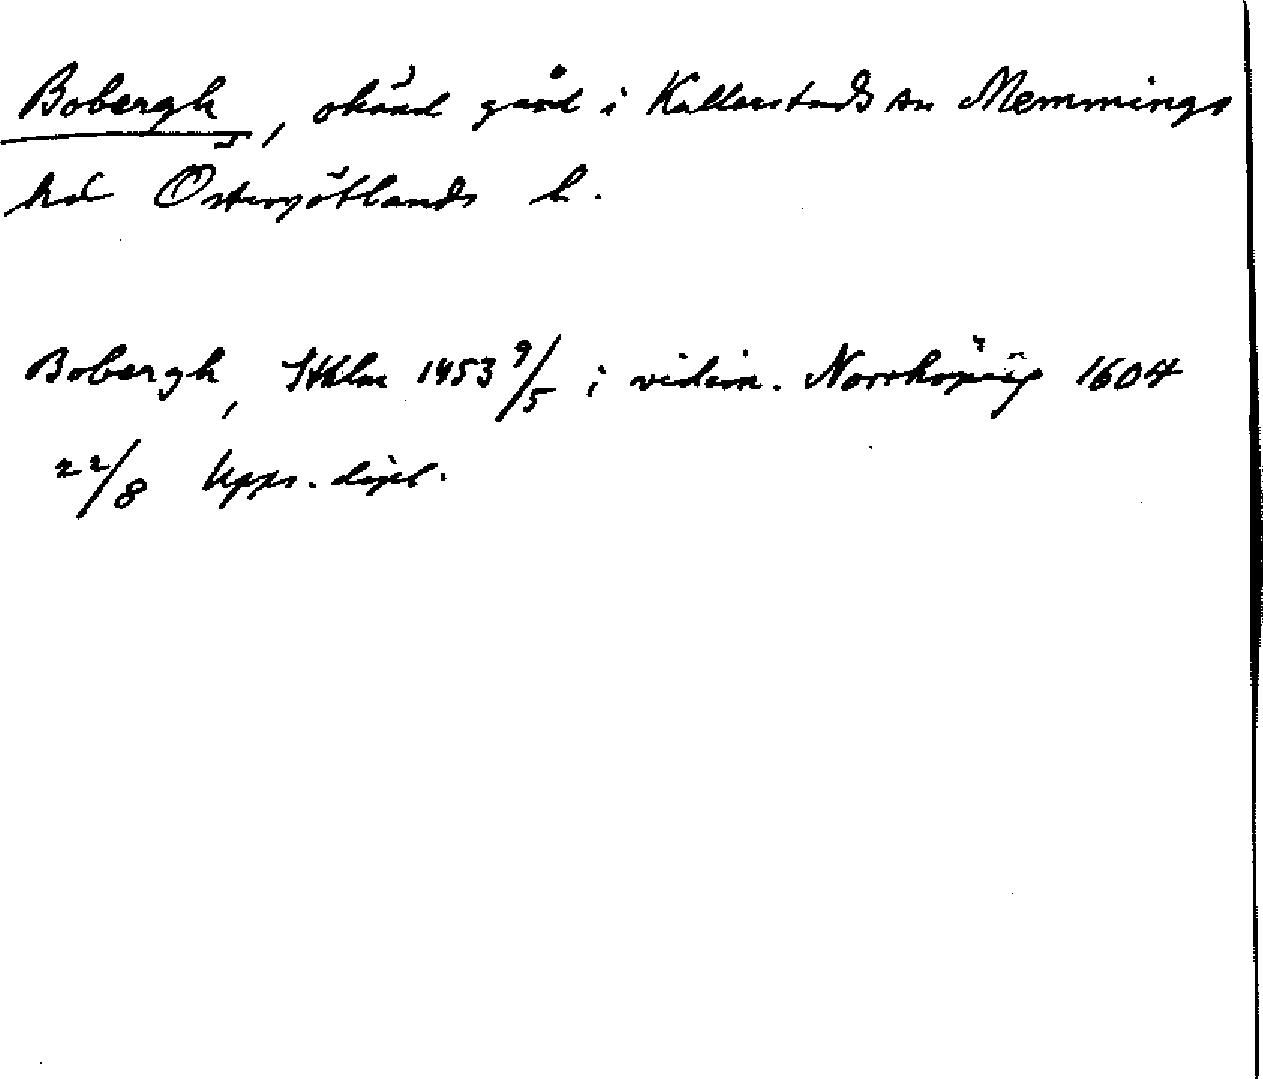 Bobergh, okänd gård i Kallerstads sn Memmings
hd Östergötlands l.
Bobergh, Sthlm 1453 9/5 i vidim. Norrköping 1604
22/8 Upps. dipl.